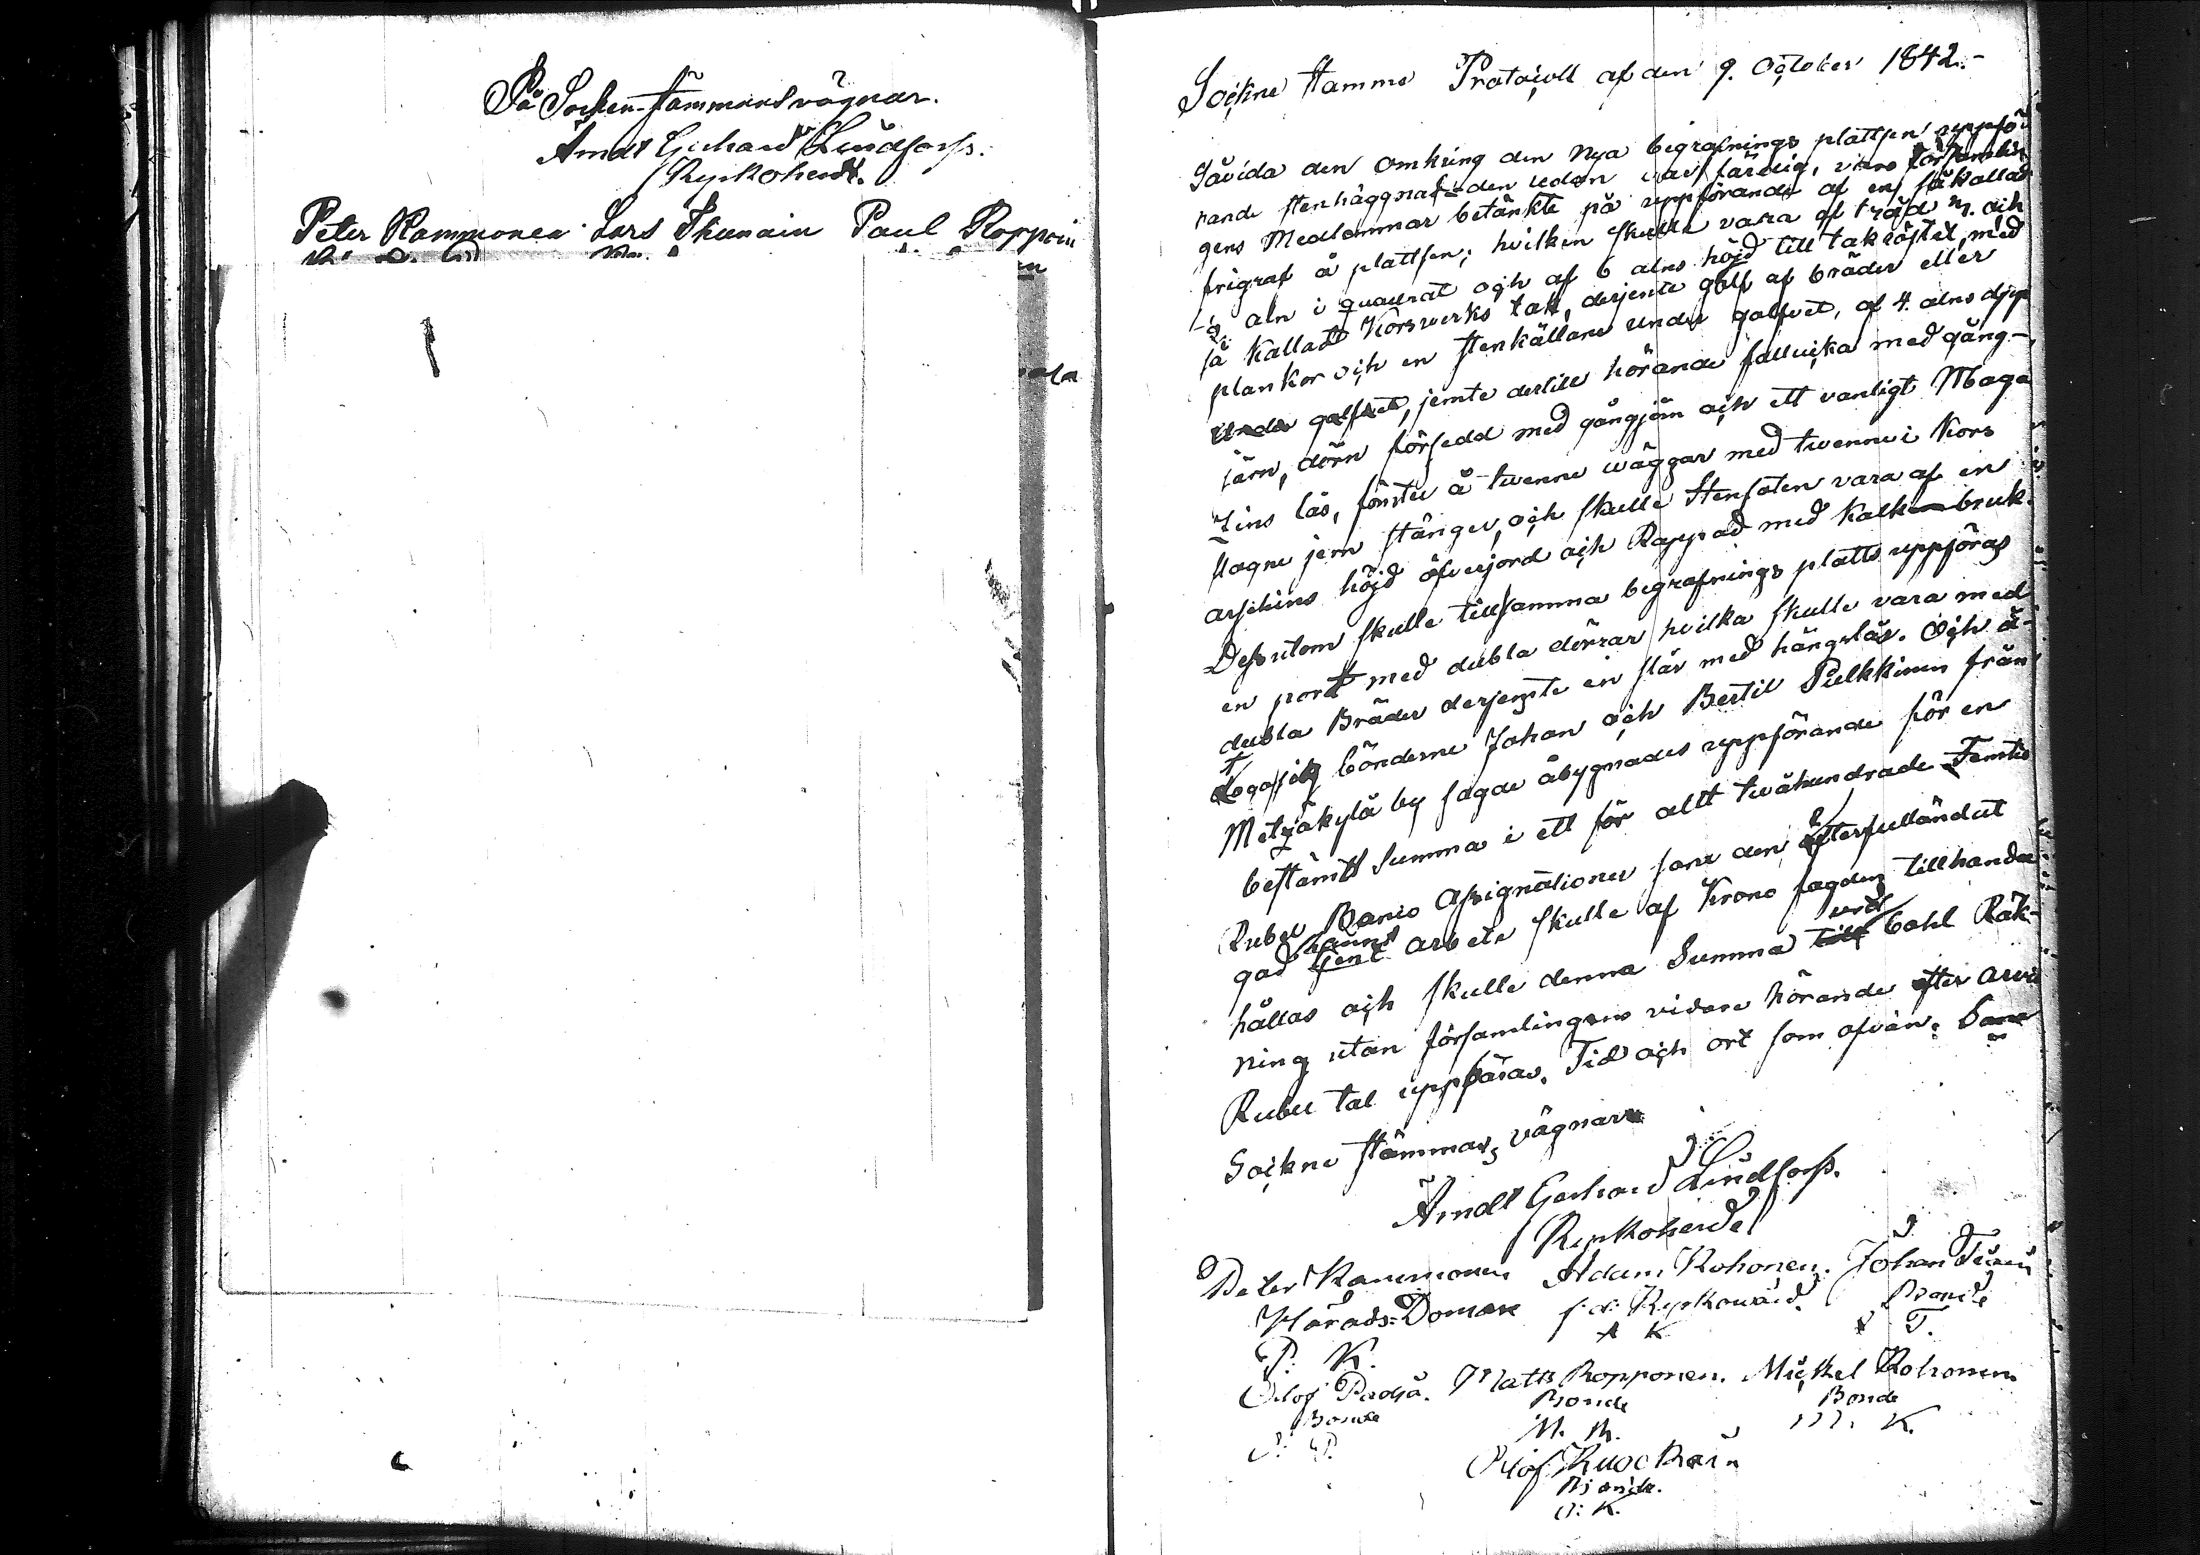 På Socken-stämmans vägnar.
Arndt Gerhard Lindforss.
Kyrkoherde.
Peter Rammonen Lars Ikunain Paul Ropponen
Sockne Stämme Protocoll af den 9. October 1842.-
Såvida den omkring den nya begrafnings plattsen uppfö-
rande stenhäggnaden redan var färdig, voro församlin
gens Medlemmar betänkte på uppförande af en så kallad
frigraf å plattsen; hvilken skulle vara af träd 7. och
½ aln i quadrat och af 6 alns höjd till takröstet, med
så kalladt Korswerks tak, derjente golf af bräder eller
plankor och en stenkällare under golfvet, af 4. alns djup
under golfvet, jemte dertill hörande fallucka med gång-
järn, dörn försedd med gångjärn och ett vanligt Maga
zins lås, fönster å twenne wäggar med twenne i Kors
slagne jern stänger, och skulle Stenfoten vara af en
arschins höjd öfverjord och Rappad med Kalk bruk.
Dessutom skulle till samma begrafnings platts uppföras
en port med dubla dörrar hvilka skulle vara med
dubla Bräder derjemte en slå med hänglås. Och å-
togo sig bönderne Johan och Bertil Pulkkinen från
Metzäkylä by sagde åbygnades uppförande för en
bestämd Summa i ett för allt twåhundrade Femtio
Rubel Banco Assignationer som den efter fulländat
gad arbete skulle af Krono fagden tillhanda
hållas och skulle denna Summa till bahl Räk-
ning utan församlingens vidare hörande efter
Rubel tal uppbäras. Tid och ort som ofvan.
Sockne stämmans vägnar
Arndt Gerhard Lindforss.
Kyrkoherde
Peter Rammonen Adam Kohonen. Johan
Härads-Domare f:d: Kyrkowärd. Bonde
P: K. A K T.
Olof Matts Ropponen. Mickel Kohonen
Bonde Bonde Bonde
M. R. M. K.
Olof
Bonde.
O: K.